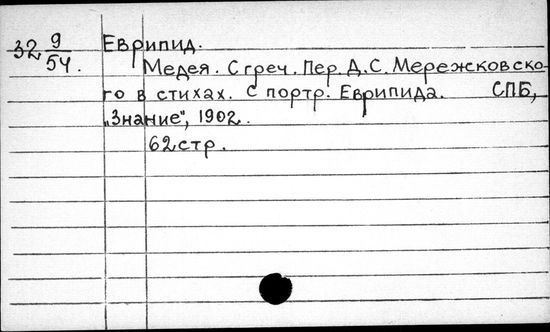 32 9/54. Еврипид.
Медея. С греч. Пер. Д.С. Мережковско-
го в стихах. С портр. Еврипида. СПБ,
„Знание", 1902.
62 стр.